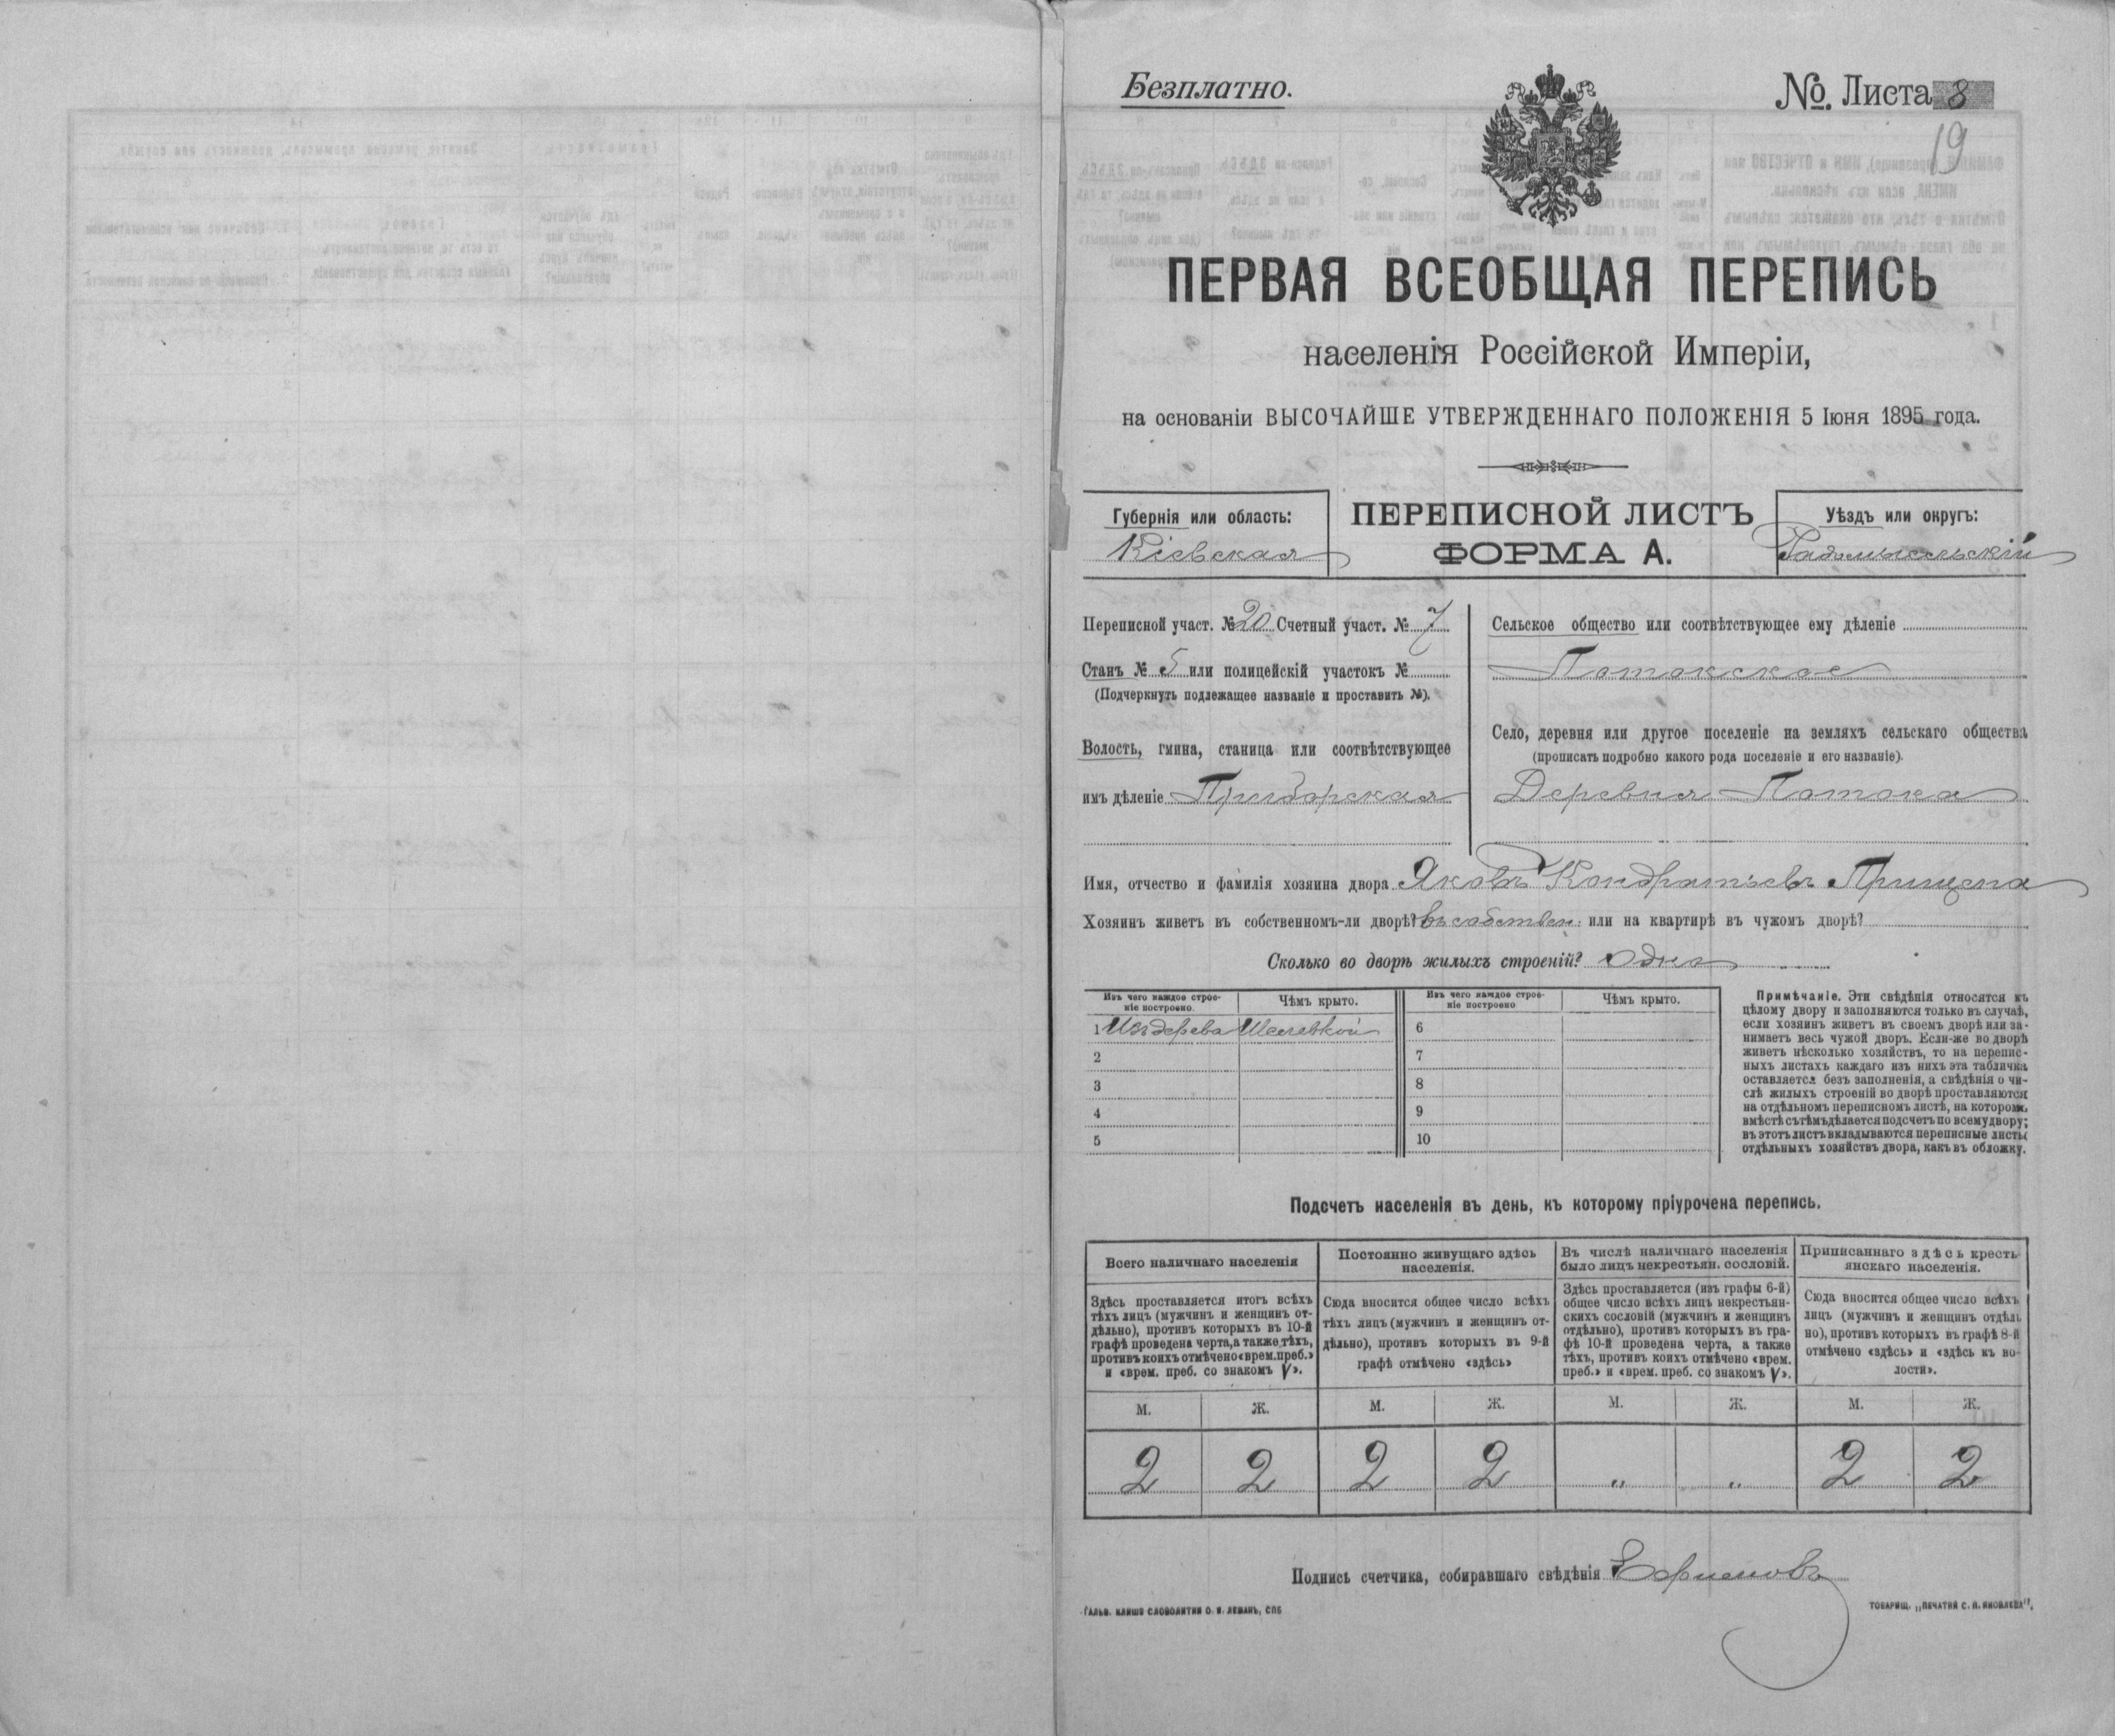 Безплатно.
№. Листа 8
19
ПЕРВАЯ ВСЕОБЩАЯ ПЕРЕПИСЬ
населенія Россійской Имперіи,
на основаніи ВЫСОЧАЙШЕ УТВЕРЖДЕННАГО ПОЛОЖЕНІЯ 5 Іюня 1895 года.
Губернія или область:
Кіевская
ПЕРЕПИСНОЙ ЛИСТЪ
ФОРМА А.
Уѣздъ или округъ:
Радомысльскій
Переписной участ. № 20 Счетный участ. № 7
Станъ № 5 или полицейскій участокъ №
(Подчеркнуть подлежащее названіе и проставить №).
Волость, гмина, станица или соотвѣтствующее
имъ дѣленіе Приборская
Сельское общество или соотвѣтствующее ему дѣленіе
Потокское
Село, деревня или другое поселеніе на земляхъ сельскаго общества
(прописать подробно какого рода поселеніе и его названіе).
Деревня Потока
Имя, отчество и фамилія хозяина двора Яковъ Кондратьевъ Прищепа
Хозяинъ живетъ въ собственномъ-ли дворѣ? въ собствен. или на квартирѣ въ чужомъ дворѣ?
Сколько во дворѣ жилыхъ строеній? Одно
Изъ чего каждое строе-
ніе построено.
Чѣмъ крыто.
Изъ чего каждое строе-
ніе построено
Чѣмъ крыто.
1 Изъ дерева Шелевкой
2
3
4
5
6
7
8
9
10
Примѣчаніе. Эти свѣдѣнія относятся къ
цѣлому двору и заполняются только въ случаѣ,
если хозяинъ живетъ въ своемъ дворѣ или за-
нимаетъ весь чужой дворъ. Если-же во дворѣ
живетъ нѣсколько хозяйствъ, то на перепис-
ныхъ листахъ каждаго изъ нихъ эта табличка
оставляется безъ заполненія, а свѣдѣнія о чи-
слѣ жилыхъ строеній во дворѣ проставляются
на отдѣльномъ переписномъ листѣ, на которомъ
вмѣстѣ съ тѣмъ дѣлается подсчетъ по всему двору;
въ этотъ листъ вкладываются переписные листы
отдѣльныхъ хозяйствъ двора, какъ въ обложку.
Подсчетъ населенія въ день, къ которому пріурочена перепись.
Всего наличнаго населенія
Здѣсь проставляется итогъ всѣхъ
тѣхъ лицъ (мужчинъ и женщинъ от-
дѣльно), противъ которыхъ въ 10-й
графѣ проведена черта, а также тѣхъ,
противъ коихъ отмѣчено «врем. преб.»
и «врем. преб. со знакомъ V».
Постоянно живущаго здѣсь
населенія.
Сюда вносится общее число всѣхъ
тѣхъ лицъ (мужчинъ и женщинъ от-
дѣльно), противъ которыхъ въ 9-й
графѣ отмѣчено «здѣсь»
Въ числѣ наличнаго населенія
было лицъ некрестьян. сословій.
Здѣсь проставляется (изъ графы 6-й)
общее число всѣхъ лицъ некрестьян-
скихъ сословій (мужчинъ и женщинъ
отдѣльно), противъ которыхъ въ гра-
фѣ 10-й проведена черта, а также
тѣхъ, противъ коихъ отмѣчено «врем.
преб.» и «врем. преб. со знакомъ V».
Приписаннаго здѣсь кресть-
янскаго населенія.
Сюда вносится общее число всѣхъ
лицъ (мужчинъ и женщинъ отдѣль
но), противъ которыхъ въ графѣ 8-й
отмѣчено «здѣсь» и «здѣсь къ во-
лости».
М. Ж. М. Ж. М. Ж. М. Ж.
2 2 2 2 „ „ 2 2
Подпись счетчика, собиравшаго свѣдѣнія Ефимовъ
ГАЛЬВ. КЛИШЕ СЛОВОЛИТНИ О. И. ЛЕМАНЪ, СПБ
ТОВАРИЩ. „ПЕЧАТНЯ С. П. ЯКОВЛЕВА“.